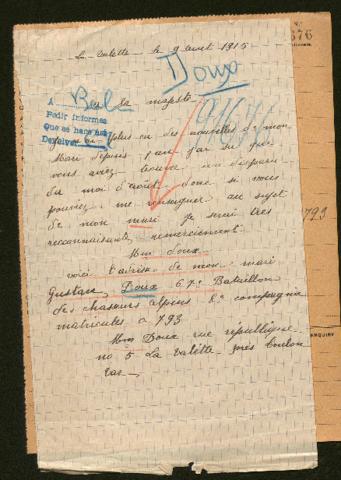 La Valette le 9 aout 1915
Doux
A Bel
Pedir informes
Que se hará
Devolver
91671
676
sa majeste
plus eu des nouvelles de mon
Mari depuis 1 an j'ai su que
vous aviez trouvé un disparu
du moi d'août donc si vous
pouviez me renseigner au sujet
de mon mari je serai très
reconnaissante remerciement
Mm Doux
voici l'adresse de mon mari
Gustave Doux 67e Bataillon
des chasseurs alpins 8e compagnie
matricules a 793
793
Mm Doux rue republique
no 5 La Valette près toulon
Var